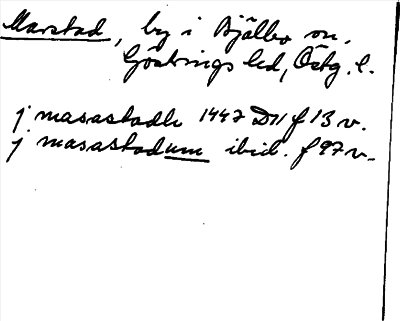 Marstad, by i Bjälbo sn,
Göstrings hd, Östg. l.
j masastadh 1447 D11 f 13 v.
j masastadum ibid. f 97 v.